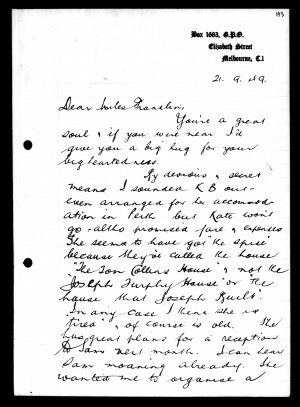 193
Box 1663, G.P.O.
Elizabeth Street
Melbourne, C.1
21. 9. 49.
Dear Miles Franklin,
You're a great
soul & if you were near I'd
give you a big hug for your
big heartedness.
By devious & secret
means I sounded K B out -
even arranged for her accommod-
ation in Perth but Kate won't
go - altho promised fare & expenses
She seems to have got "the spise"
because they've called the house
"The Tom Collins House" & not the
Joseph Furphy House or the
house that Joseph Built.
In any case I think she is
tired & of course is old. She
has great plans for a reception
to Sam next month. I can hear
Sam moaning already. She
wanted me to organise a